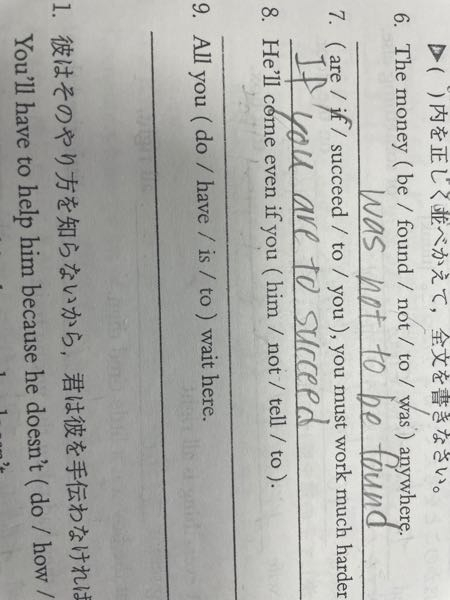 ( )内を正しく並べかえて，全文を書きなさい。
6. The money ( be / found / not / to / was ) anywhere.
was not to be found
7. ( are / if / succeed / to / you ), you must work much harder
If you are to succeed
8. He'll come even if you ( him / not / tell / to ).
9. All you ( do / have / is / to ) wait here.
1. 彼はそのやり方を知らないから，君は彼を手伝わなければ
You'll have to help him because he doesn't ( do / how /